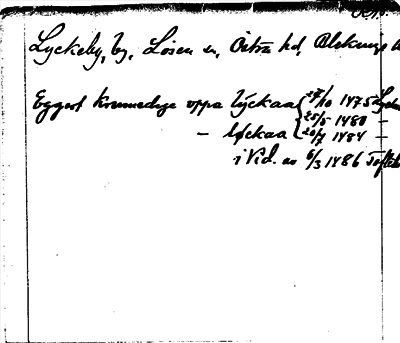 Lyckeby, by, Lösen sn, Östra hd, Blekinge
Eggert Krummedige oppa lyckaa 24/10 1475 Lyckaa
25/5 1480 —
— lyckaa 20/7 1484 —
i Vid. av 6/3 1486